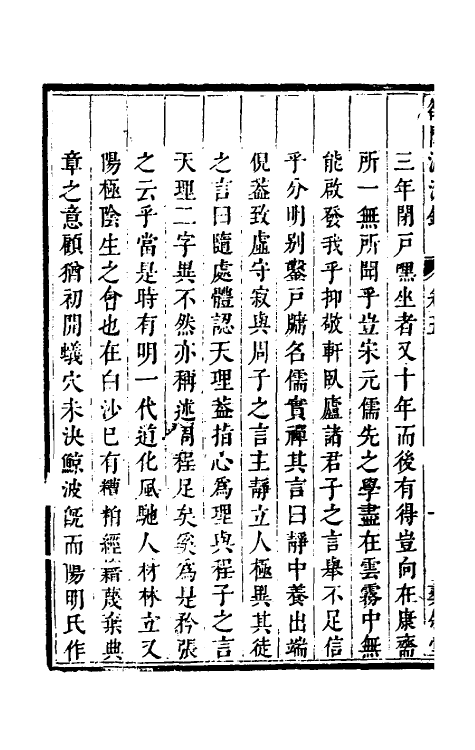 三年閉戶嘿坐者又十年而後有得豈向在康齋
所一無所聞乎豈宋元儒先之學盡在雲霧中無
能啟發我乎抑敬軒臥廬諸君子之言舉不足信
乎分明別鑿戶牖名儒實禪其言曰靜中養出端
倪葢致虛守寂與周子之言主靜立人極異其徒
之言曰隨處體認天理葢指心爲理與程子之言
天理二字異不然亦稱述周程足矣奚爲是矜張
之云乎當是時有明一代道化風馳人材林立又
陽極陰生之會也在白沙已有糟粕經籍蔑棄典
章之意顧猶初開蟻穴未決鯨波旣而陽明氏作